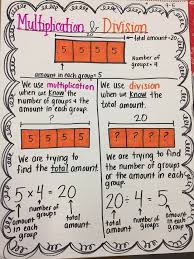 Multiplication & Division
total amount=20
5 5 5 5
Number of
groups=4
amount in each group=5
We use multiplication
when we know the
number of groups & the
amount in each group.
?
5 5 5 5
We are trying to
find the total amount.
5 x 4 = 20
amount
in each
group
number
of
groups
total
amount
We use division
when we know the
total amount.
20
? ? ? ?
We are trying to find
the number of groups
or the amount in each
group.
20÷4=5
total
amount
number
of
groups
amount
in each
group